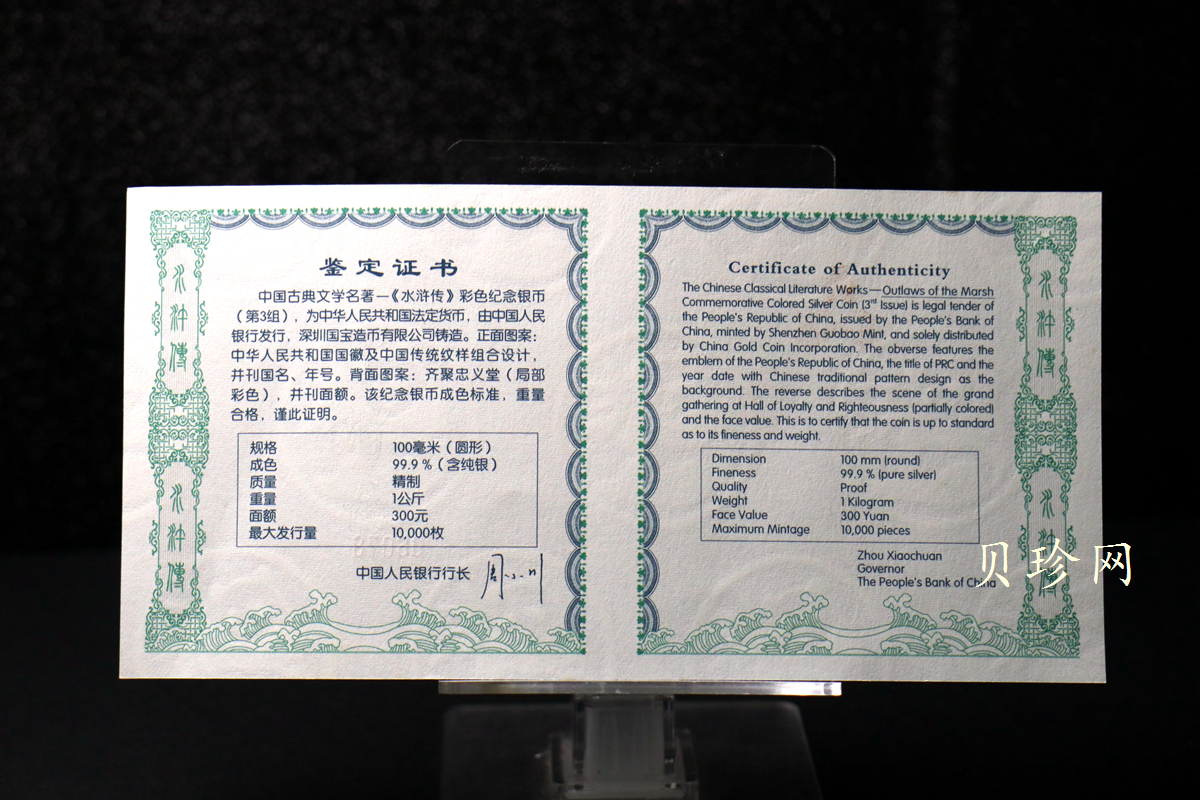 水浒傳
水浒傳
鉴定证书
中国古典文学名著—《水浒传》彩色纪念银币
（第3组），为中华人民共和国法定货币，由中国人民
银行发行，深圳国宝造币有限公司铸造。正面图案：
中华人民共和国国徽及中国传统纹样组合设计，
并刊国名、年号。背面图案：齐聚忠义堂（局部
彩色），并刊面额。该纪念银币成色标准，重量
合格，谨此证明。
规格 100毫米（圆形）
成色 99.9 %（含纯银）
质量 精制
重量 1公斤
面额 300元
最大发行量 10,000枚
中国人民银行行长 周小川
Certificate of Authenticity
The Chinese Classical Literature Works—Outlaws of the Marsh
Commemorative Colored Silver Coin (3rd Issue) is legal tender of
the People's Republic of China, issued by the People's Bank of
China, minted by Shenzhen Guobao Mint, and solely distributed
by China Gold Coin Incorporation. The obverse features the
emblem of the People's Republic of China, the title of PRC and the
year date with Chinese traditional pattern design as the
background. The reverse describes the scene of the grand
gathering at Hall of Loyalty and Righteousness (partially colored)
and the face value. This is to certify that the coin is up to standard
as to its fineness and weight.
Dimension 100 mm (round)
Fineness 99.9 % (pure silver)
Quality Proof
Weight 1 Kilogram
Face Value 300 Yuan
Maximum Mintage 10,000 pieces
Zhou Xiaochuan
Governor
The People's Bank of China
水浒傳
水浒傳
贝珍网